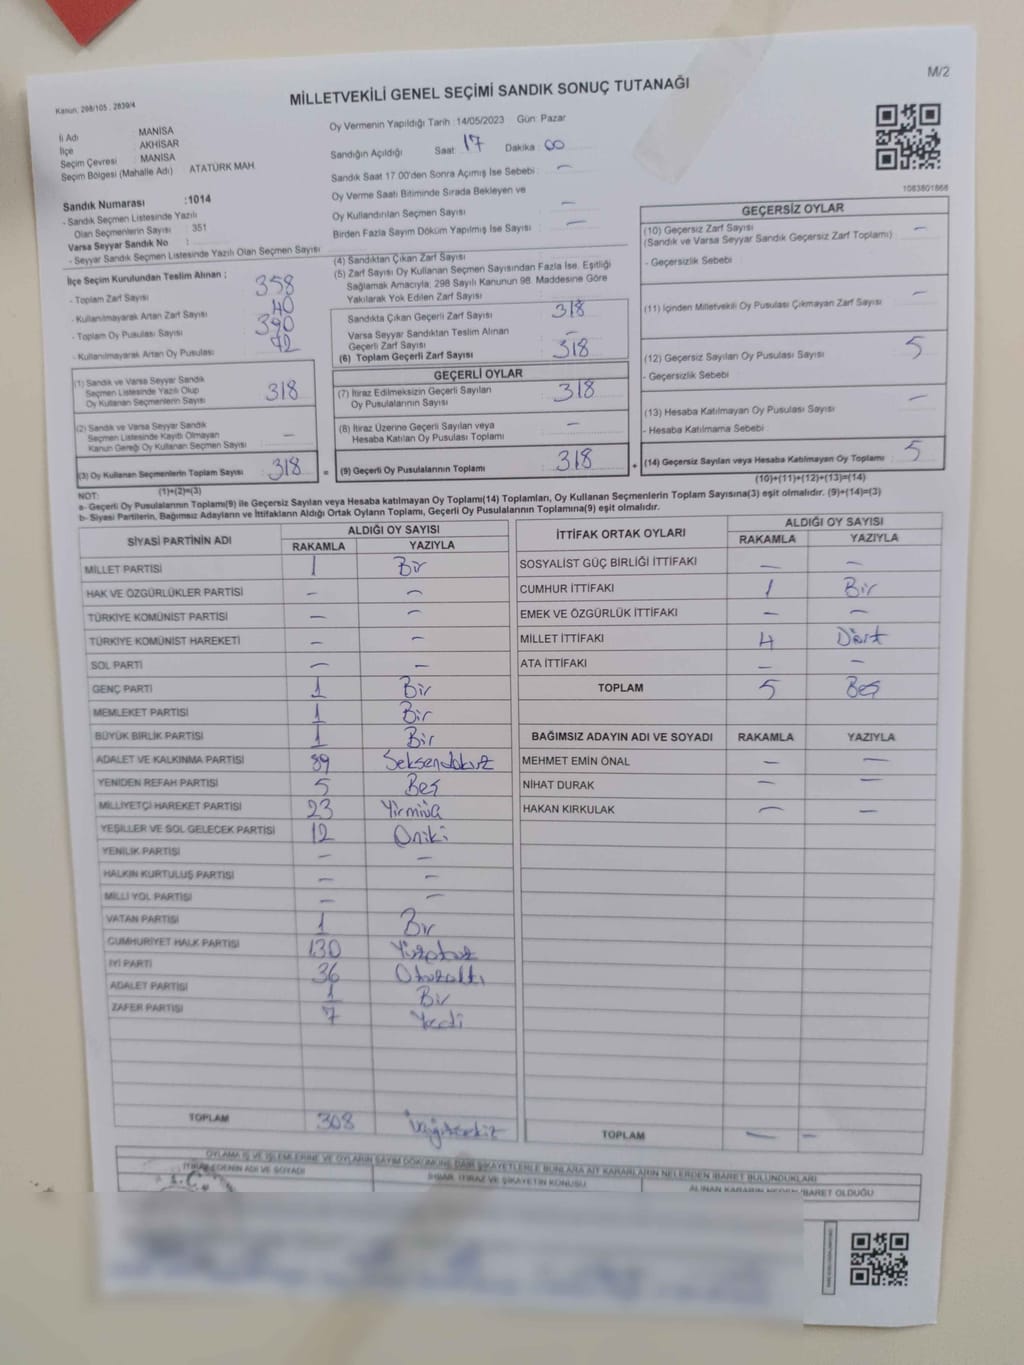 M/2
Kanun: 298/105 , 2839/4
MİLLETVEKİLİ GENEL SEÇİMİ SANDIK SONUÇ TUTANAĞI
İl Adı : MANİSA
İlçe : AKHİSAR
Seçim Çevresi : MANİSA
Seçim Bölgesi (Mahalle Adı) : ATATÜRK MAH.
Oy Vermenin Yapıldığı Tarih :14/05/2023 Gün: Pazar
Sandığın Açıldığı Saat: 17 Dakika: 00
Sandık Saat 17:00'den Sonra Açımış İse Sebebi : —
Oy Verme Saati Bitiminde Sırada Bekleyen ve
Oy Kullandırılan Seçmen Sayısı : —
Birden Fazla Sayım Döküm Yapılmış İse Sayısı : —
1083801866
Sandık Numarası :1014
- Sandık Seçmen Listesinde Yazılı
Olan Seçmenlerin Sayısı : 351
Varsa Seyyar Sandık No :
- Seyyar Sandık Seçmen Listesinde Yazılı Olan Seçmen Sayısı :
İlçe Seçim Kurulundan Teslim Alınan ;
- Toplam Zarf Sayısı : 358
- Kullanılmayarak Artan Zarf Sayısı : 40
- Toplam Oy Pusulası Sayısı : 390
- Kullanılmayarak Artan Oy Pusulası : 72
(1) Sandık ve Varsa Seyyar Sandık
Seçmen Listesinde Yazılı Olup
Oy Kullanan Seçmenlerin Sayısı : 318
(2) Sandık ve Varsa Seyyar Sandık
Seçmen Listesinde Kayıtlı Olmayan
Kanun Gereği Oy Kullanan Seçmen Sayısı : —
(3) Oy Kullanan Seçmenlerin Toplam Sayısı : 318
(1)+(2)=(3)
(4) Sandıktan Çıkan Zarf Sayısı :
(5) Zarf Sayısı Oy Kullanan Seçmen Sayısından Fazla İse, Eşitliği
Sağlamak Amacıyla; 298 Sayılı Kanunun 98. Maddesine Göre
Yakılarak Yok Edilen Zarf Sayısı :
Sandıkta Çıkan Geçerli Zarf Sayısı : 318
Varsa Seyyar Sandıktan Teslim Alınan
Geçerli Zarf Sayısı : —
(6) Toplam Geçerli Zarf Sayısı : 318
GEÇERLİ OYLAR
(7) İtiraz Edilmeksizin Geçerli Sayılan
Oy Pusulalarının Sayısı : 318
(8) İtiraz Üzerine Geçerli Sayılan veya
Hesaba Katılan Oy Pusulası Toplamı : —
= (9) Geçerli Oy Pusulalarının Toplamı : 318 +
GEÇERSİZ OYLAR
(10) Geçersiz Zarf Sayısı : —
(Sandık ve Varsa Seyyar Sandık Geçersiz Zarf Toplamı)
- Geçersizlik Sebebi :
(11) İçinden Milletvekili Oy Pusulası Çıkmayan Zarf Sayısı : —
(12) Geçersiz Sayılan Oy Pusulası Sayısı : 5
- Geçersizlik Sebebi :
(13) Hesaba Katılmayan Oy Pusulası Sayısı : —
- Hesaba Katılmama Sebebi :
(14) Geçersiz Sayılan veya Hesaba Katılmayan Oy Toplamı : 5
(10)+(11)+(12)+(13)=(14)
NOT:
a- Geçerli Oy Pusulalarının Toplamı(9) ile Geçersiz Sayılan veya Hesaba katılmayan Oy Toplamı(14) Toplamları, Oy Kullanan Seçmenlerin Toplam Sayısına(3) eşit olmalıdır. (9)+(14)=(3)
b- Siyasi Partilerin, Bağımsız Adayların ve İttifakların Aldığı Ortak Oyların Toplamı, Geçerli Oy Pusulalarının Toplamına(9) eşit olmalıdır.
SİYASİ PARTİNİN ADI ALDIĞI OY SAYISI
RAKAMLA YAZIYLA
MİLLET PARTİSİ 1 Bir
HAK VE ÖZGÜRLÜKLER PARTİSİ — —
TÜRKİYE KOMÜNİST PARTİSİ — —
TÜRKİYE KOMÜNİST HAREKETİ — —
SOL PARTİ — —
GENÇ PARTİ 1 Bir
MEMLEKET PARTİSİ 1 Bir
BÜYÜK BİRLİK PARTİSİ 1 Bir
ADALET VE KALKINMA PARTİSİ 89 Seksendokuz
YENİDEN REFAH PARTİSİ 5 Beş
MİLLİYETÇİ HAREKET PARTİSİ 23 Yirmiüç
YEŞİLLER VE SOL GELECEK PARTİSİ 12 Oniki
YENİLİK PARTİSİ — —
HALKIN KURTULUŞ PARTİSİ — —
MİLLİ YOL PARTİSİ — —
VATAN PARTİSİ 1 Bir
CUMHURİYET HALK PARTİSİ 130 Yüzotuz
İYİ PARTİ 36 Otuzaltı
ADALET PARTİSİ 1 Bir
ZAFER PARTİSİ 7 Yedi
TOPLAM 308 Üçyüzsekiz
İTTİFAK ORTAK OYLARI ALDIĞI OY SAYISI
RAKAMLA YAZIYLA
SOSYALİST GÜÇ BİRLİĞİ İTTİFAKI — —
CUMHUR İTTİFAKI 1 Bir
EMEK VE ÖZGÜRLÜK İTTİFAKI — —
MİLLET İTTİFAKI 4 Dört
ATA İTTİFAKI — —
TOPLAM 5 Beş
BAĞIMSIZ ADAYIN ADI VE SOYADI RAKAMLA YAZIYLA
MEHMET EMİN ÖNAL — —
NİHAT DURAK — —
HAKAN KIRKULAK — —
TOPLAM — —
OYLAMA İŞ VE İŞLEMLERİNE VE OYLARIN SAYIM DÖKÜMÜNE DAİR ŞİKAYETLERLE BUNLARA AİT KARARLARIN NELERDEN İBARET BULUNDUKLARI
İTİRAZ EDENİN ADI VE SOYADI İHBAR, İTİRAZ VE ŞİKAYETİN KONUSU ALINAN KARARIN NEDEN İBARET OLDUĞU
T.C.